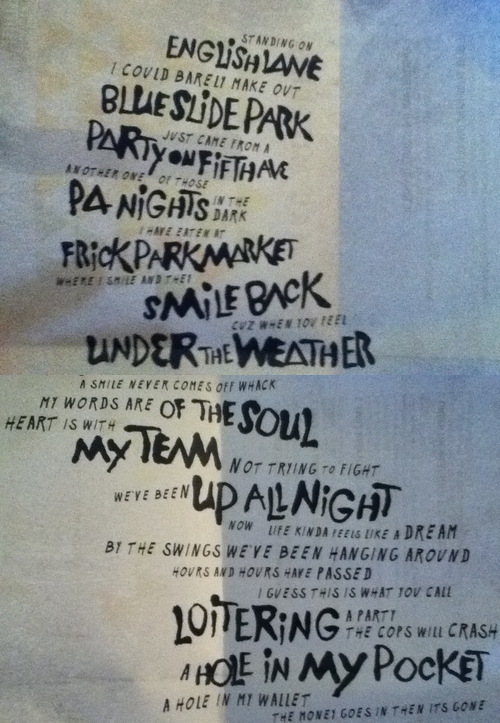 STANDING ON
ENGLISH LANE
I COULD BARELY MAKE OUT
BLUE SLIDE PARK
JUST CAME FROM A
PARTY ON FIFTH AVE
ANOTHER ONE OF THOSE
PA NIGHTS IN THE
DARK
I HAVE EATEN AT
FRICK PARK MARKET
WHERE I SMILE AND THEY
SMILE BACK
CUZ WHEN YOU FEEL
UNDER THE WEATHER
A SMILE NEVER COMES OFF WHACK
MY WORDS ARE OF THE SOUL
HEART IS WITH
MY TEAM
NOT TRYING TO FIGHT
WE'VE BEEN UP ALL NIGHT
NOW LIFE KINDA FEELS LIKE A DREAM
BY THE SWINGS WE'VE BEEN HANGING AROUND
HOURS AND HOURS HAVE PASSED
I GUESS THIS IS WHAT YOU CALL
LOITERING A PARTY
THE COPS WILL CRASH
A HOLE IN MY POCKET
A HOLE IN MY WALLET
THE MONEY GOES IN THEN ITS GONE